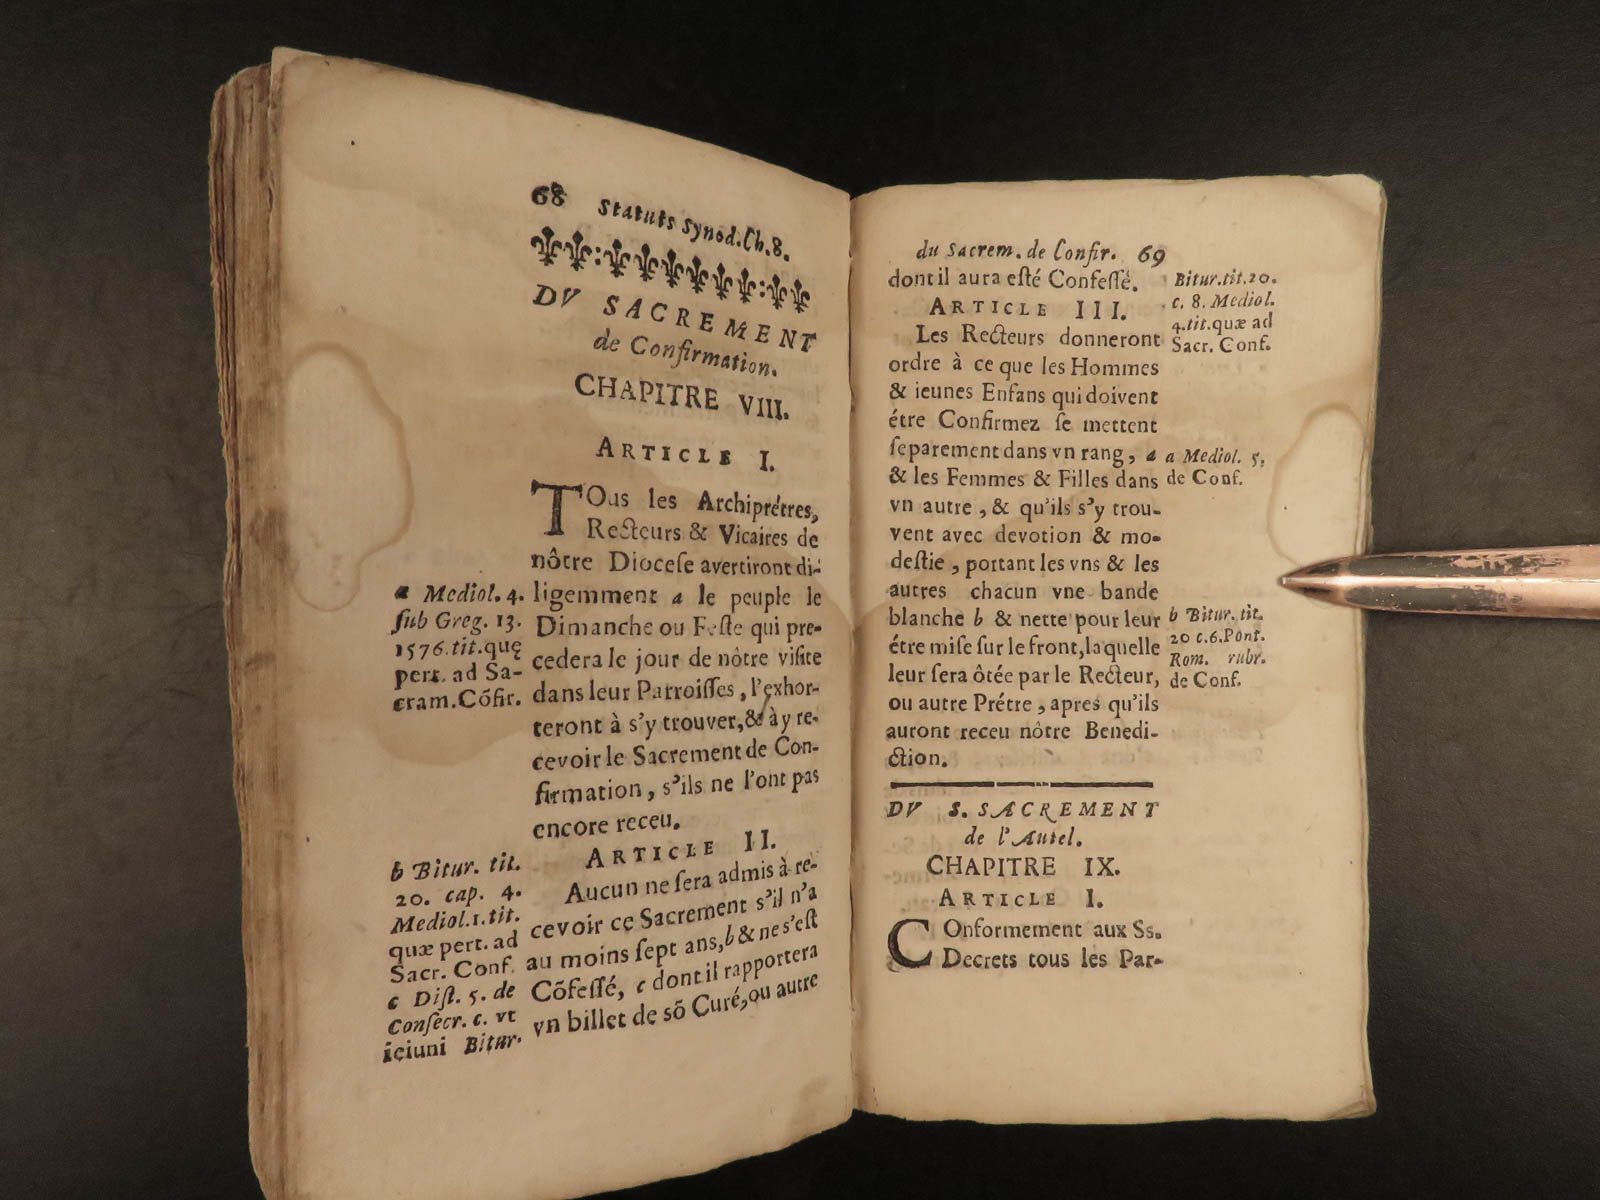 68 Statuts Synod. Ch. 8.
DV SACREMENT
de Confirmation.
CHAPITRE VIII.
ARTICLE I.
TOus les Archiprétres,
Recteurs & Vicaires de
nôtre Diocese avertiront di-
ligemment a le peuple le
Dimanche ou Feste qui pre-
cedera le jour de nôtre visite
dans leur Parroisses, l'exhor-
teront à s'y trouver, & à y re-
cevoir le Sacrement de Con-
firmation, s'ils ne l'ont pas
encore receu.
ARTICLE II.
Aucun ne sera admis à re-
cevoir ce Sacrement s'il n'a
au moins sept ans, b & ne s'est
Cõfessé, c dont il rapportera
vn billet de sõ Curé, ou autre
a Mediol. 4.
sub Greg. 13.
1576. tit. quę
pert. ad Sa-
cram. Cõfir.
b Bitur. tit.
20. cap. 4.
Mediol. 1. tit.
quæ pert. ad
Sacr. Conf.
c Dist. 5. de
Consecr. c. vt
ieiuni Bitur.
du Sacrem. de Confir. 69
dont il aura esté Confessé.
ARTICLE III.
Les Recteurs donneront
ordre à ce que les Hommes
& ieunes Enfans qui doivent
étre Confirmez se mettent
separement dans vn rang, a
& les Femmes & Filles dans
vn autre, & qu'ils s'y trou-
vent avec devotion & mo-
destie, portant les vns & les
autres chacun vne bande
blanche b & nette pour leur
étre mise sur le front, laquelle
leur sera ôtée par le Recteur,
ou autre Prétre, apres qu'ils
auront receu nôtre Benedi-
ction.
DV S. SACREMENT
de l'Autel.
CHAPITRE IX.
ARTICLE I.
COnformement aux Ss.
Decrets tous les Par-
Bitur. tit. 20.
c. 8. Mediol.
4. tit. quæ ad
Sacr. Conf.
a Mediol. 5.
de Conf.
b Bitur. tit.
20 c. 6. Pont.
Rom. rubr.
de Conf.